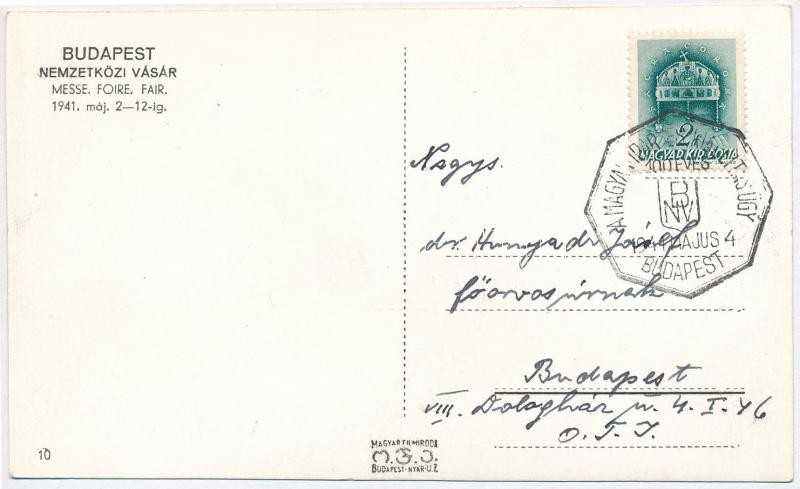 BUDAPEST
NEMZETKÖZI VÁSÁR
MESSE. FOIRE. FAIR.
1941. máj. 2—12-ig.
SACRA CORONA
2
MAGYAR KIR. POSTA
A MAGYAR
100 ÉVES
BNV
1941 MÁJUS 4
BUDAPEST
Nagys.
dr Hunyadi József
főorvos úrnak
Budapest
VIII. Dologház u. 4. I. 46
O. T. I.
10
MAGYAR FILMIRODA
M.F.I.
BUDAPEST-NYÁR-U.2